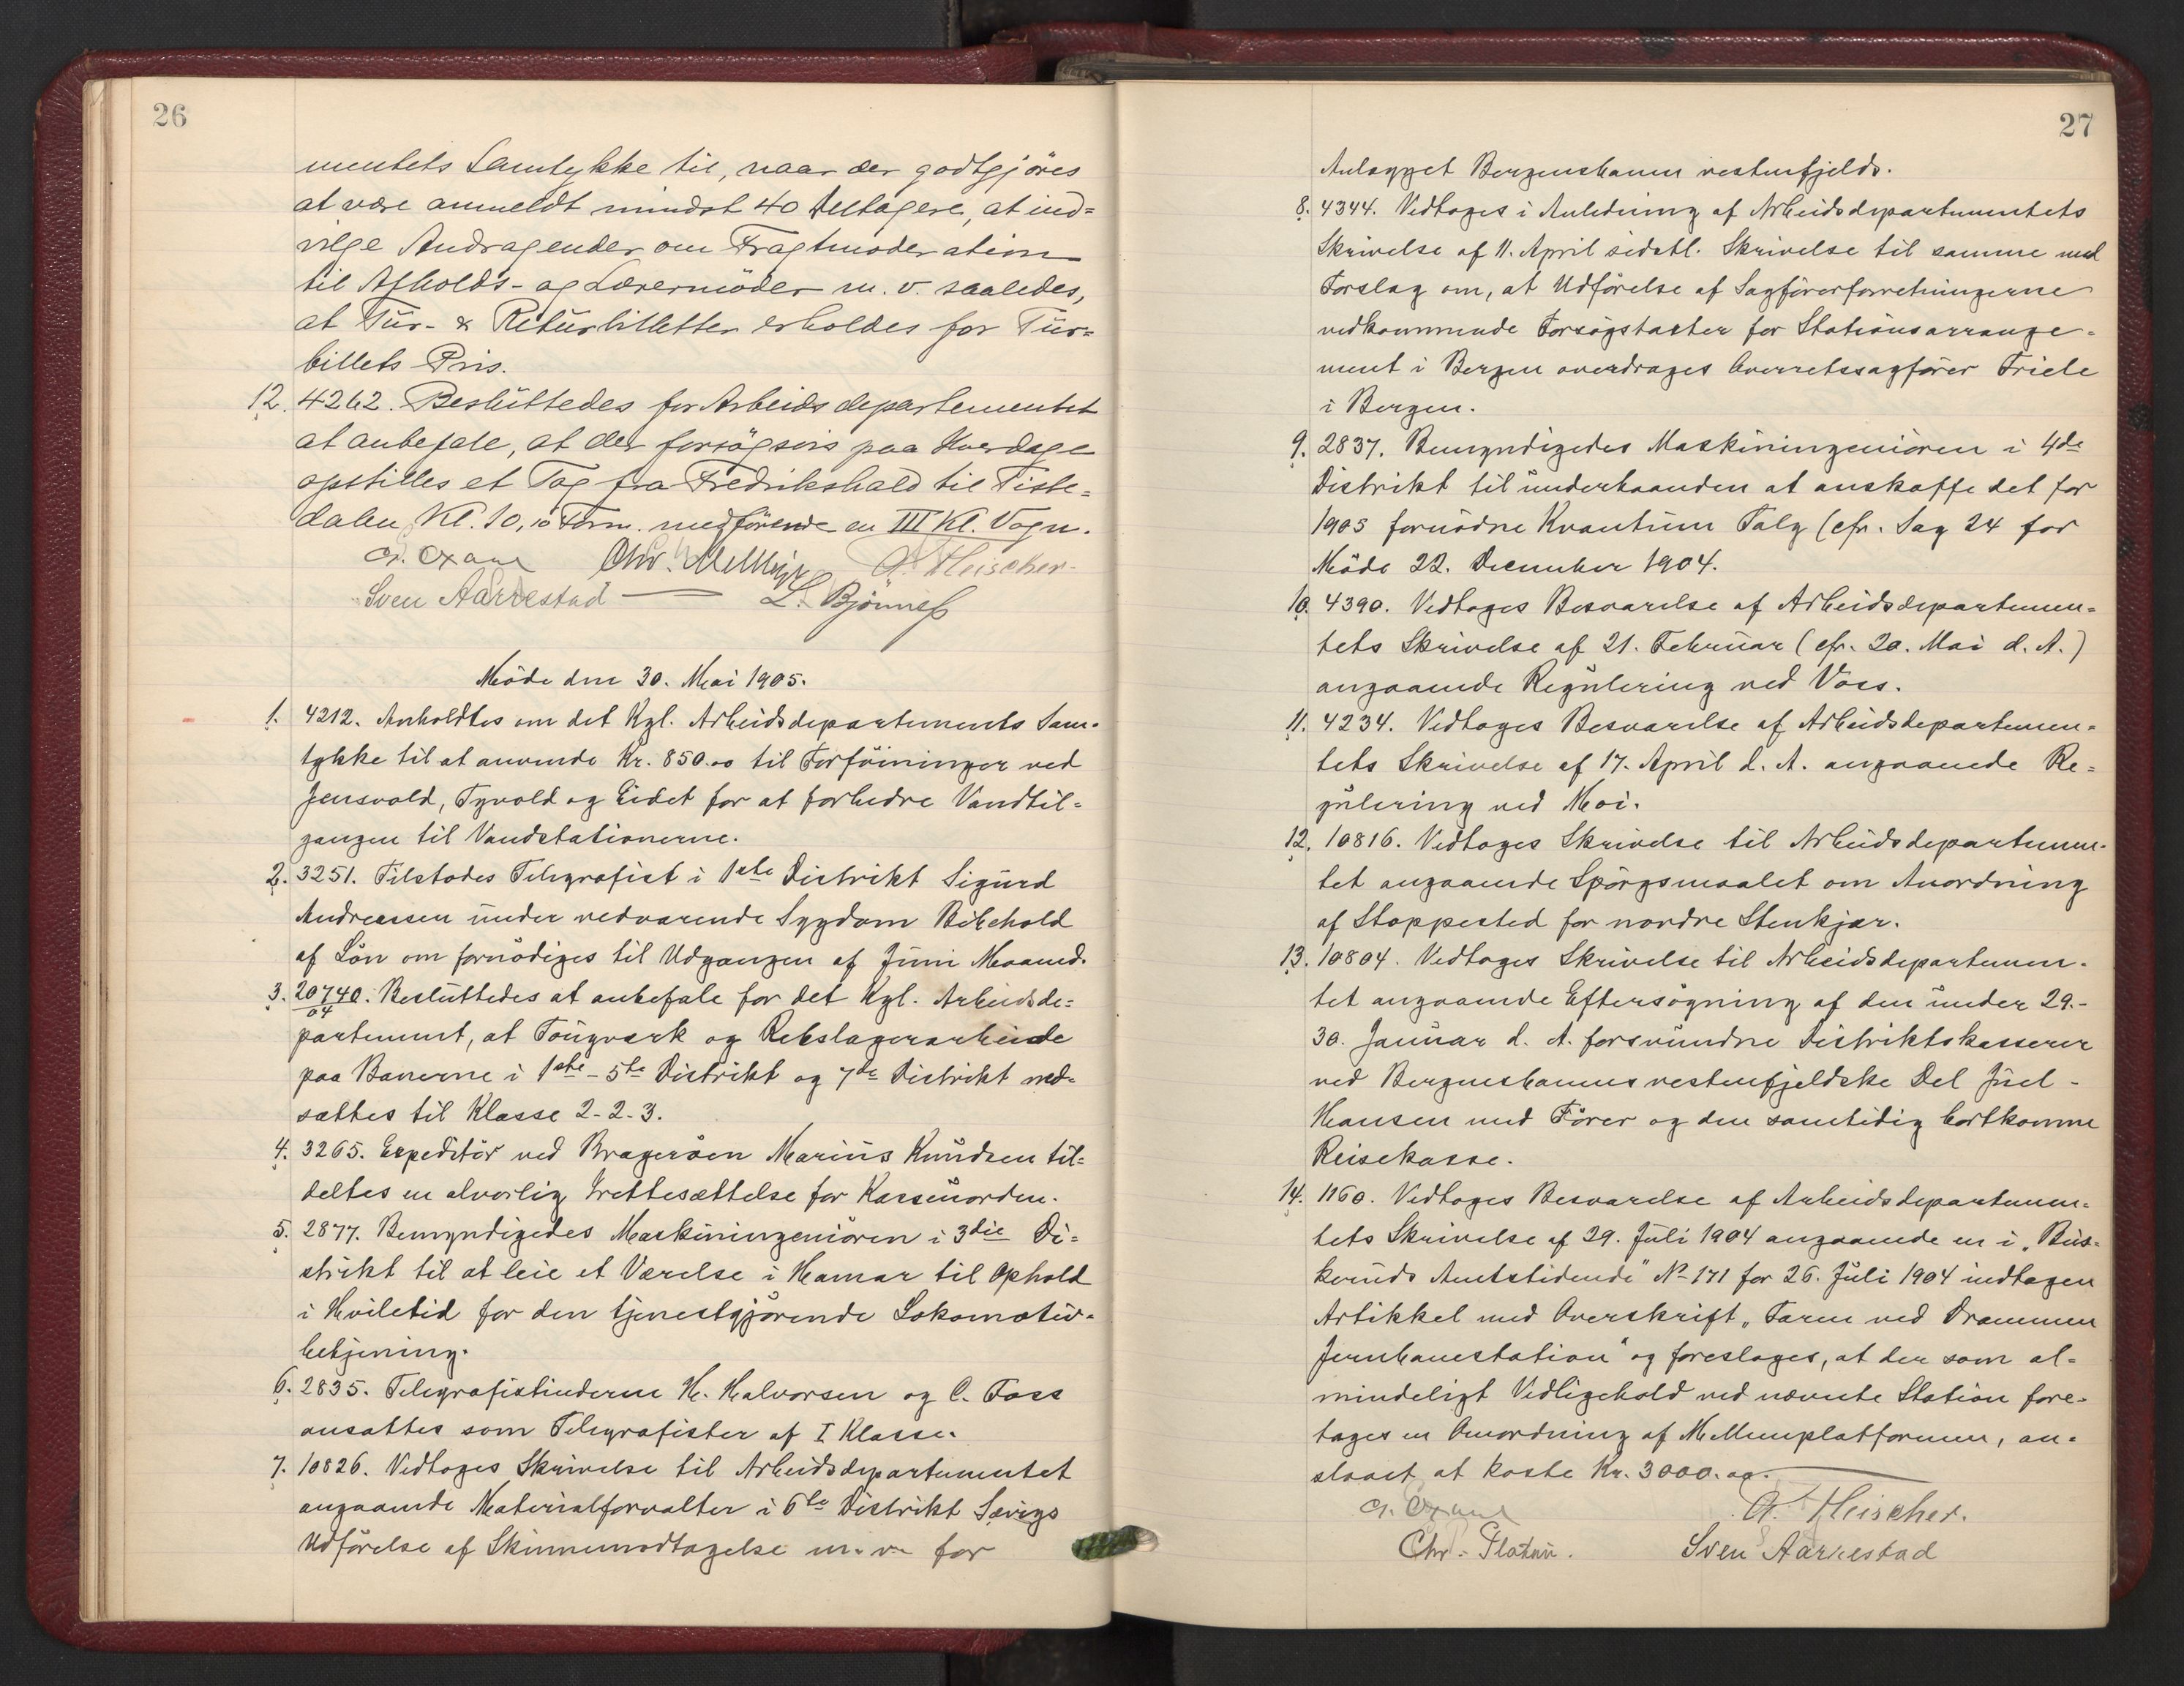 26
mentets Samtykke til, naar der godtgjöres
at være anmeldt mindst 40 Deltagere, at ind=
vilge Andragender om Fragtmoderation
til Afholds- og Lærermöder m. v. saaledes,
at Tur- & Returbilletter erholdes for Tur=
billets Pris.
12. 4262. Besluttedes for Arbeidsdepartementet
at anbefale, at der forsögsvis paa Hverdage
opstilles et Tog fra Fredrikshald til Tiste=
dalen Kl. 10,10 Form. medförende en III Kl. Vogn.
Chr. A. Fleischer.
Sven Aarrestad L. Bjönness
Möde den 30. Mai 1905.
1. 4212. Anholdtes om det Kgl. Arbeidsdepartements Sam-
tykke til at anvende Kr. 850.00 til Forföininger ved
Jensvold, Tyvold og Eidet for at forbedre Vandtil=
gangen til Vandstationerne.
2. 3251. Tilstodes Telegrafist i 1ste Distrikt Sigurd
Andreassen under vedvarende Sygdom Bibehold
af Lön om fornödiges til Udgangen af Juni Maaned.
3. 20740/04. Besluttedes at anbefale for det Kgl. Arbeidsde=
partement, at Tougverk og Rebslagerarbeide
paa Banerne i 1ste - 5te Distrikt og 7de Distrikt ned=
sættes til Klasse 2-2-3.
4. 3265. Expeditör ved Bragerøen Marius Knudsen til=
deltes en alvorlig Irettesættelse for Kasseuorden.
5. 2877. Bemyndigedes Maskiningeniören i 3die Di=
strikt til at leie et Værelse i Hamar til Ophold
i Hviletid for den tjenestgjörende Lokomotiv-
betjening.
6. 2835. Telegrafistinderne H. Halvorsen og C. Foss
ansattes som Telegrafister af I Klasse.
7. 10826. Vedtoges Skrivelse til Arbeidsdepartementet
angaaende Materialforvalter i 6te Distrikt Sævigs
Udförelse af Skinnemodtagelse m. v. for
27
Anlægget Bergensbanen vestenfjelds.
8. 4344. Vedtoges i Anledning af Arbeidsdepartementets
Skrivelse af 11. April sidstl. Skrivelse til samme med
Forslag om, at Udförelse af Sagförerforretningerne
vedkommende Forsögstaster for Stationsarrange-
ment i Bergen overdrages Overretssagförer Friele
i Bergen.
9. 2837. Bemyndigedes Maskiningeniören i 4de
Distrikt til underhaanden at anskaffe det for
1905 fornödne Kvantum Talg (cfr. Sag 24 for
Möde 22. December 1904.
10. 4390. Vedtoges Besvarelse af Arbeidsdepartemen=
tets Skrivelse af 21. Februar (cfr. 20. Mai d. A.)
angaaende Regulering ved Voss.
11. 4234. Vedtoges Besvarelse af Arbeidsdepartemen=
tets Skrivelse af 17. April d. A. angaaende Re=
gulering ved Moi.
12. 10816. Vedtoges Skrivelse til Arbeidsdepartemen-
tet angaaende Spörgsmaalet om Anordning
af Stoppested for nordre Stenkjær.
13. 10804. Vedtoges Skrivelse til Arbeidsdepartemen-
tet angaaende Eftersögning af den under 29.-
30. Januar d. A. forsvundne Distriktskasserer
ved Bergensbanens vestenfjeldske Del Juel-
Hansen med Förer og den samtidig bortkomne
Reisekasse.
14. 1160. Vedtoges Besvarelse af Arbeidsdepartemen=
tets Skrivelse af 29. Juli 1904 angaaende en i "Bus=
keruds Amtstidende" No 171 for 26. Juli 1904 indtagen
Artikkel med Overskrift "Faren ved Drammen
Jernbanestation" og foreslages, at der som al=
mindeligt Vedligehold ved nævnte Station fore=
tages en Omordning af Mellemplatformen, an=
slaaet at koste Kr. 3000.00.
A. Fleischer.
Chr. Platou. Sven Aarrestad